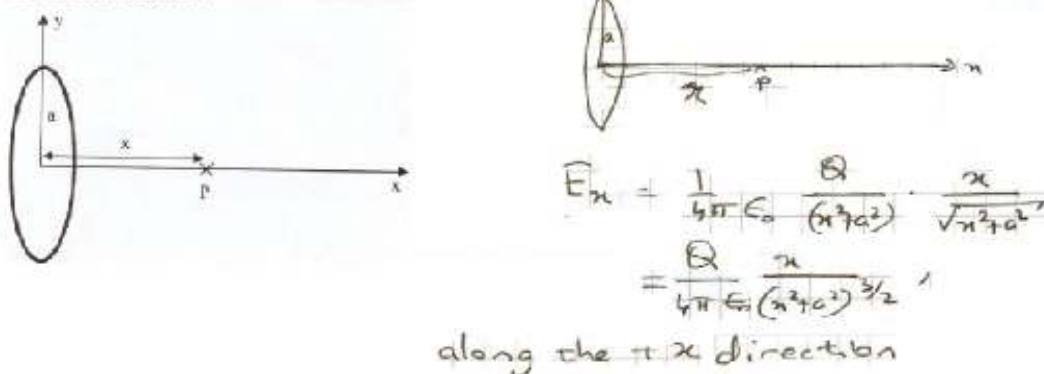 y
a
x
p
x
a
x
p
x
E_x = 1/4πε₀ Q/(x²+a²) · x/√x²+a²
= Q/4πε₀ x/(x²+a²)^3/2
along the +x direction